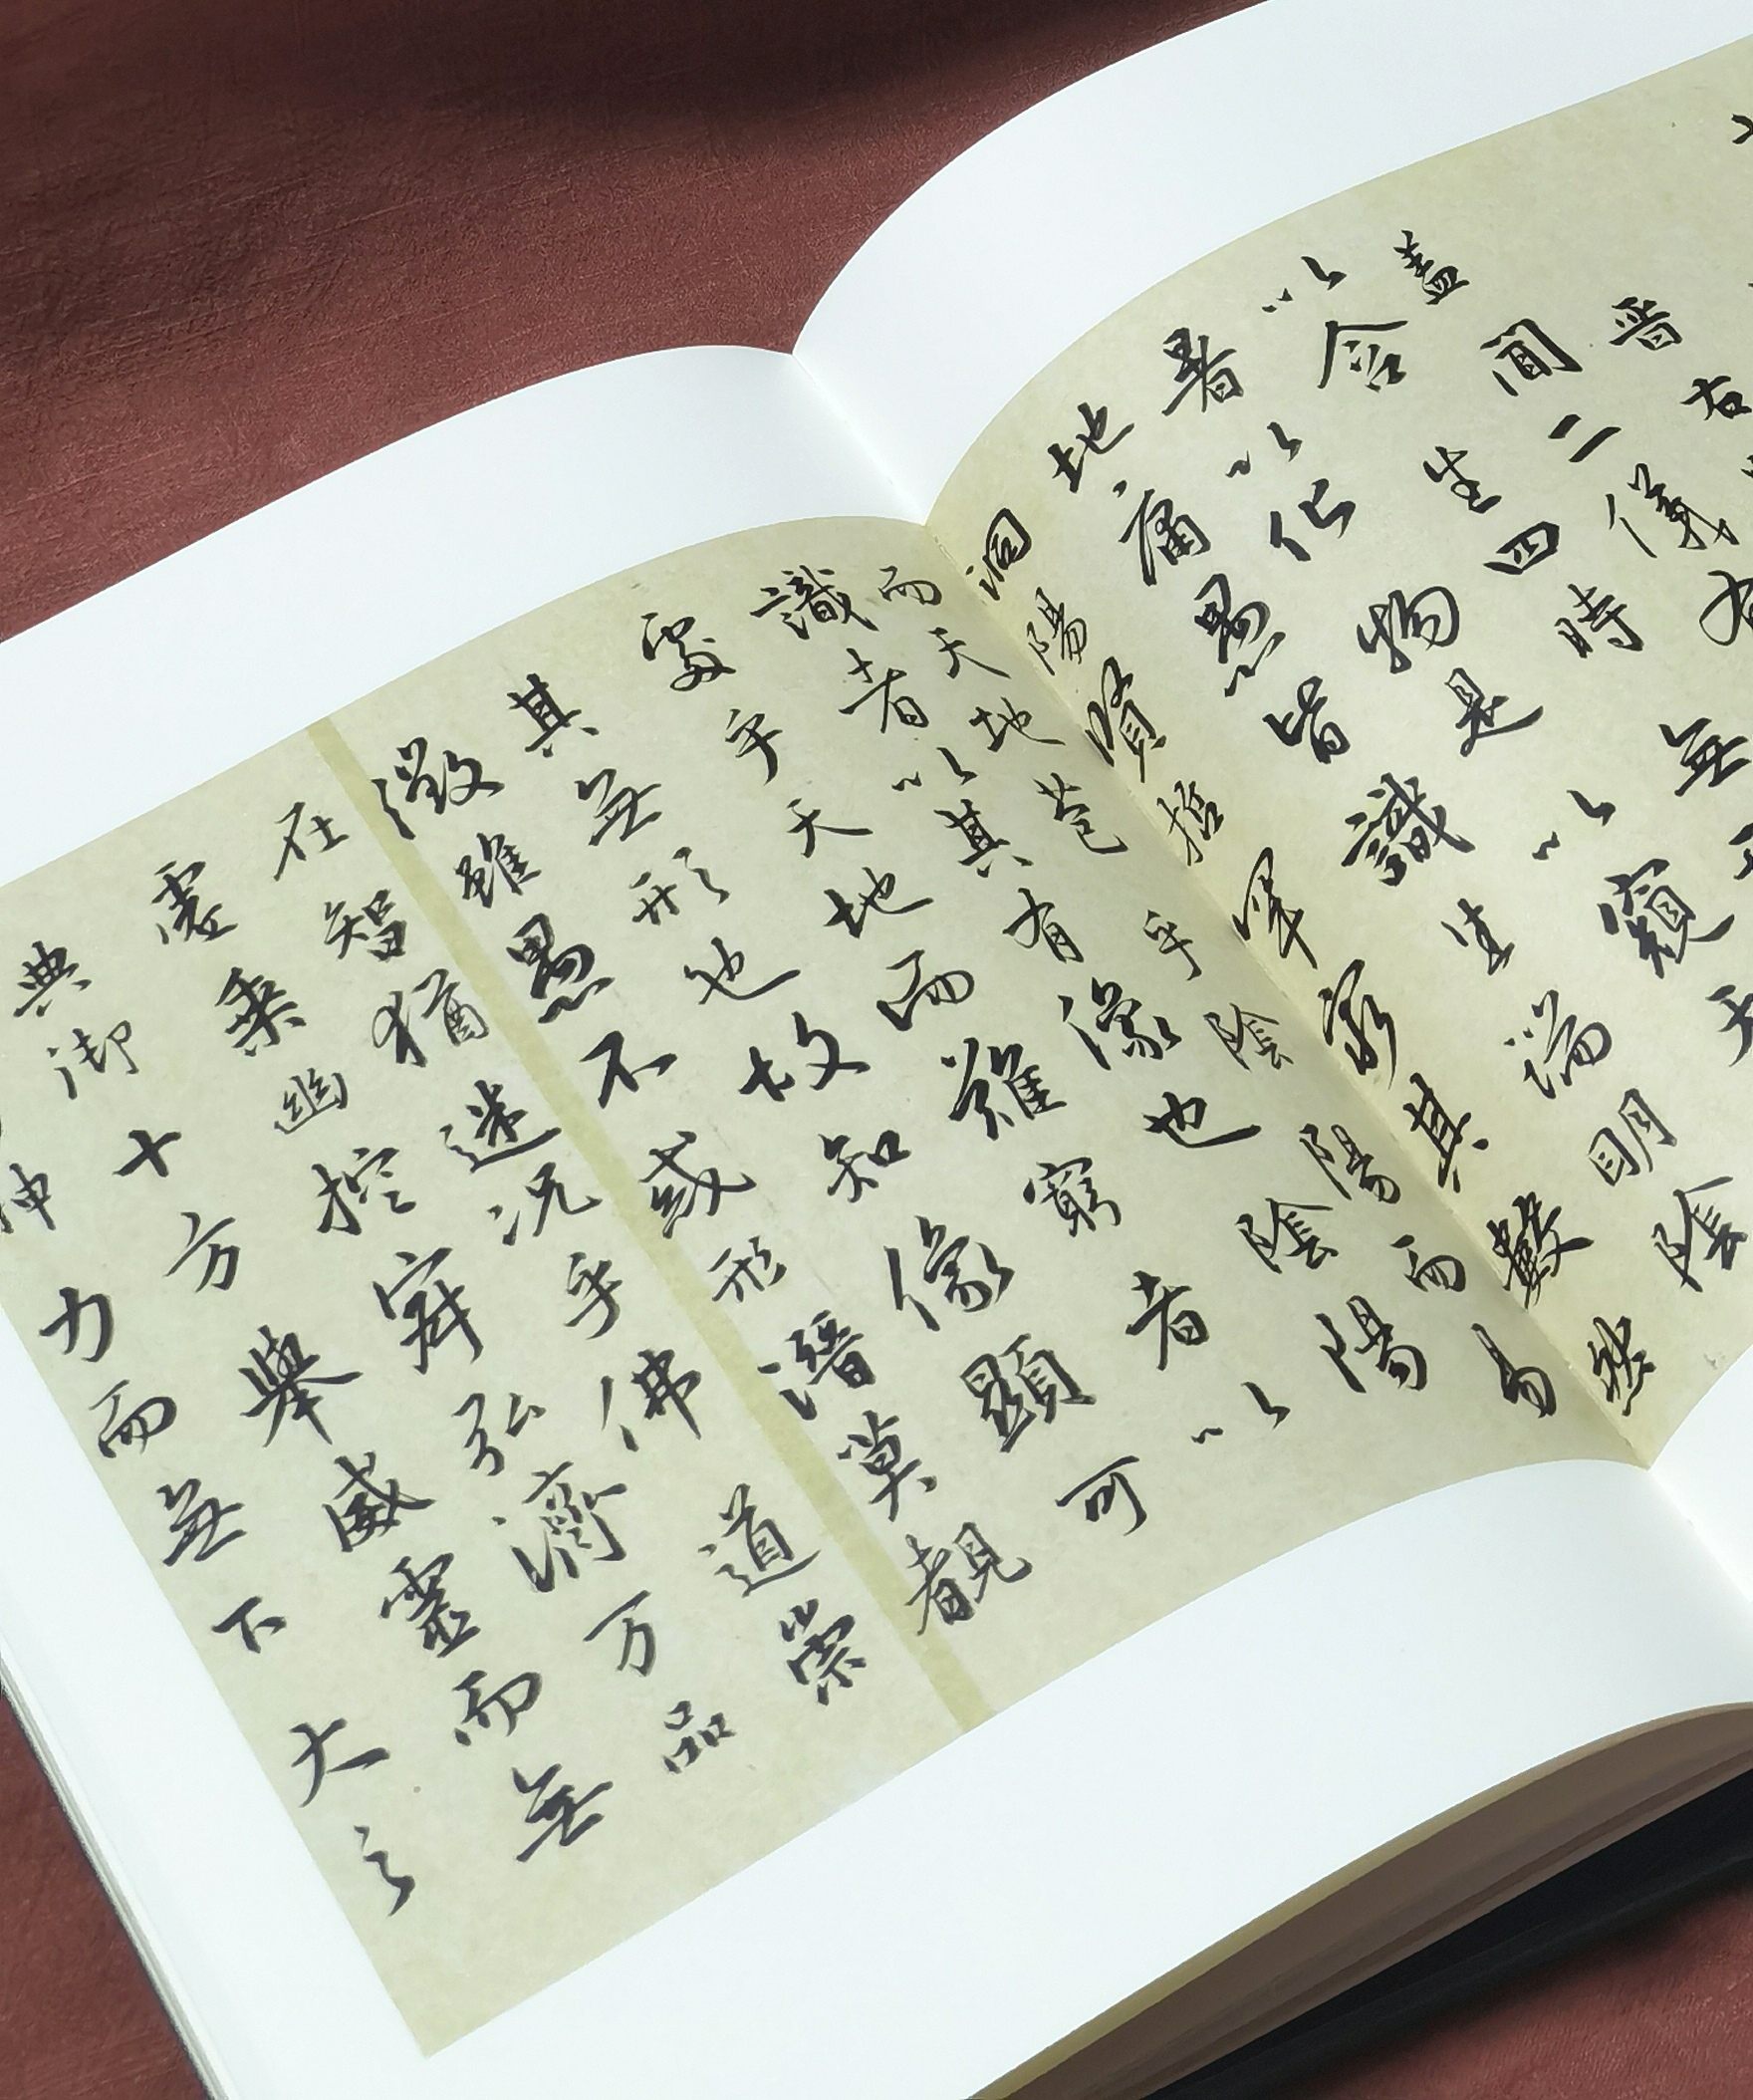 晋右
盖聞二儀有
以含生四時無
暑以化物是以窺天
地庸愚皆識其端明陰
洞陽賢哲罕窮其數然
而天地苞乎陰陽而易
識者以其有像也陰陽
處乎天地而難窮者以
其無形也故知像顯可
徵雖愚不惑形潛莫覩
在智猶迷況乎佛道崇
虛乘幽控寂弘濟万品
典御十方舉威靈而無
神力而無下大之